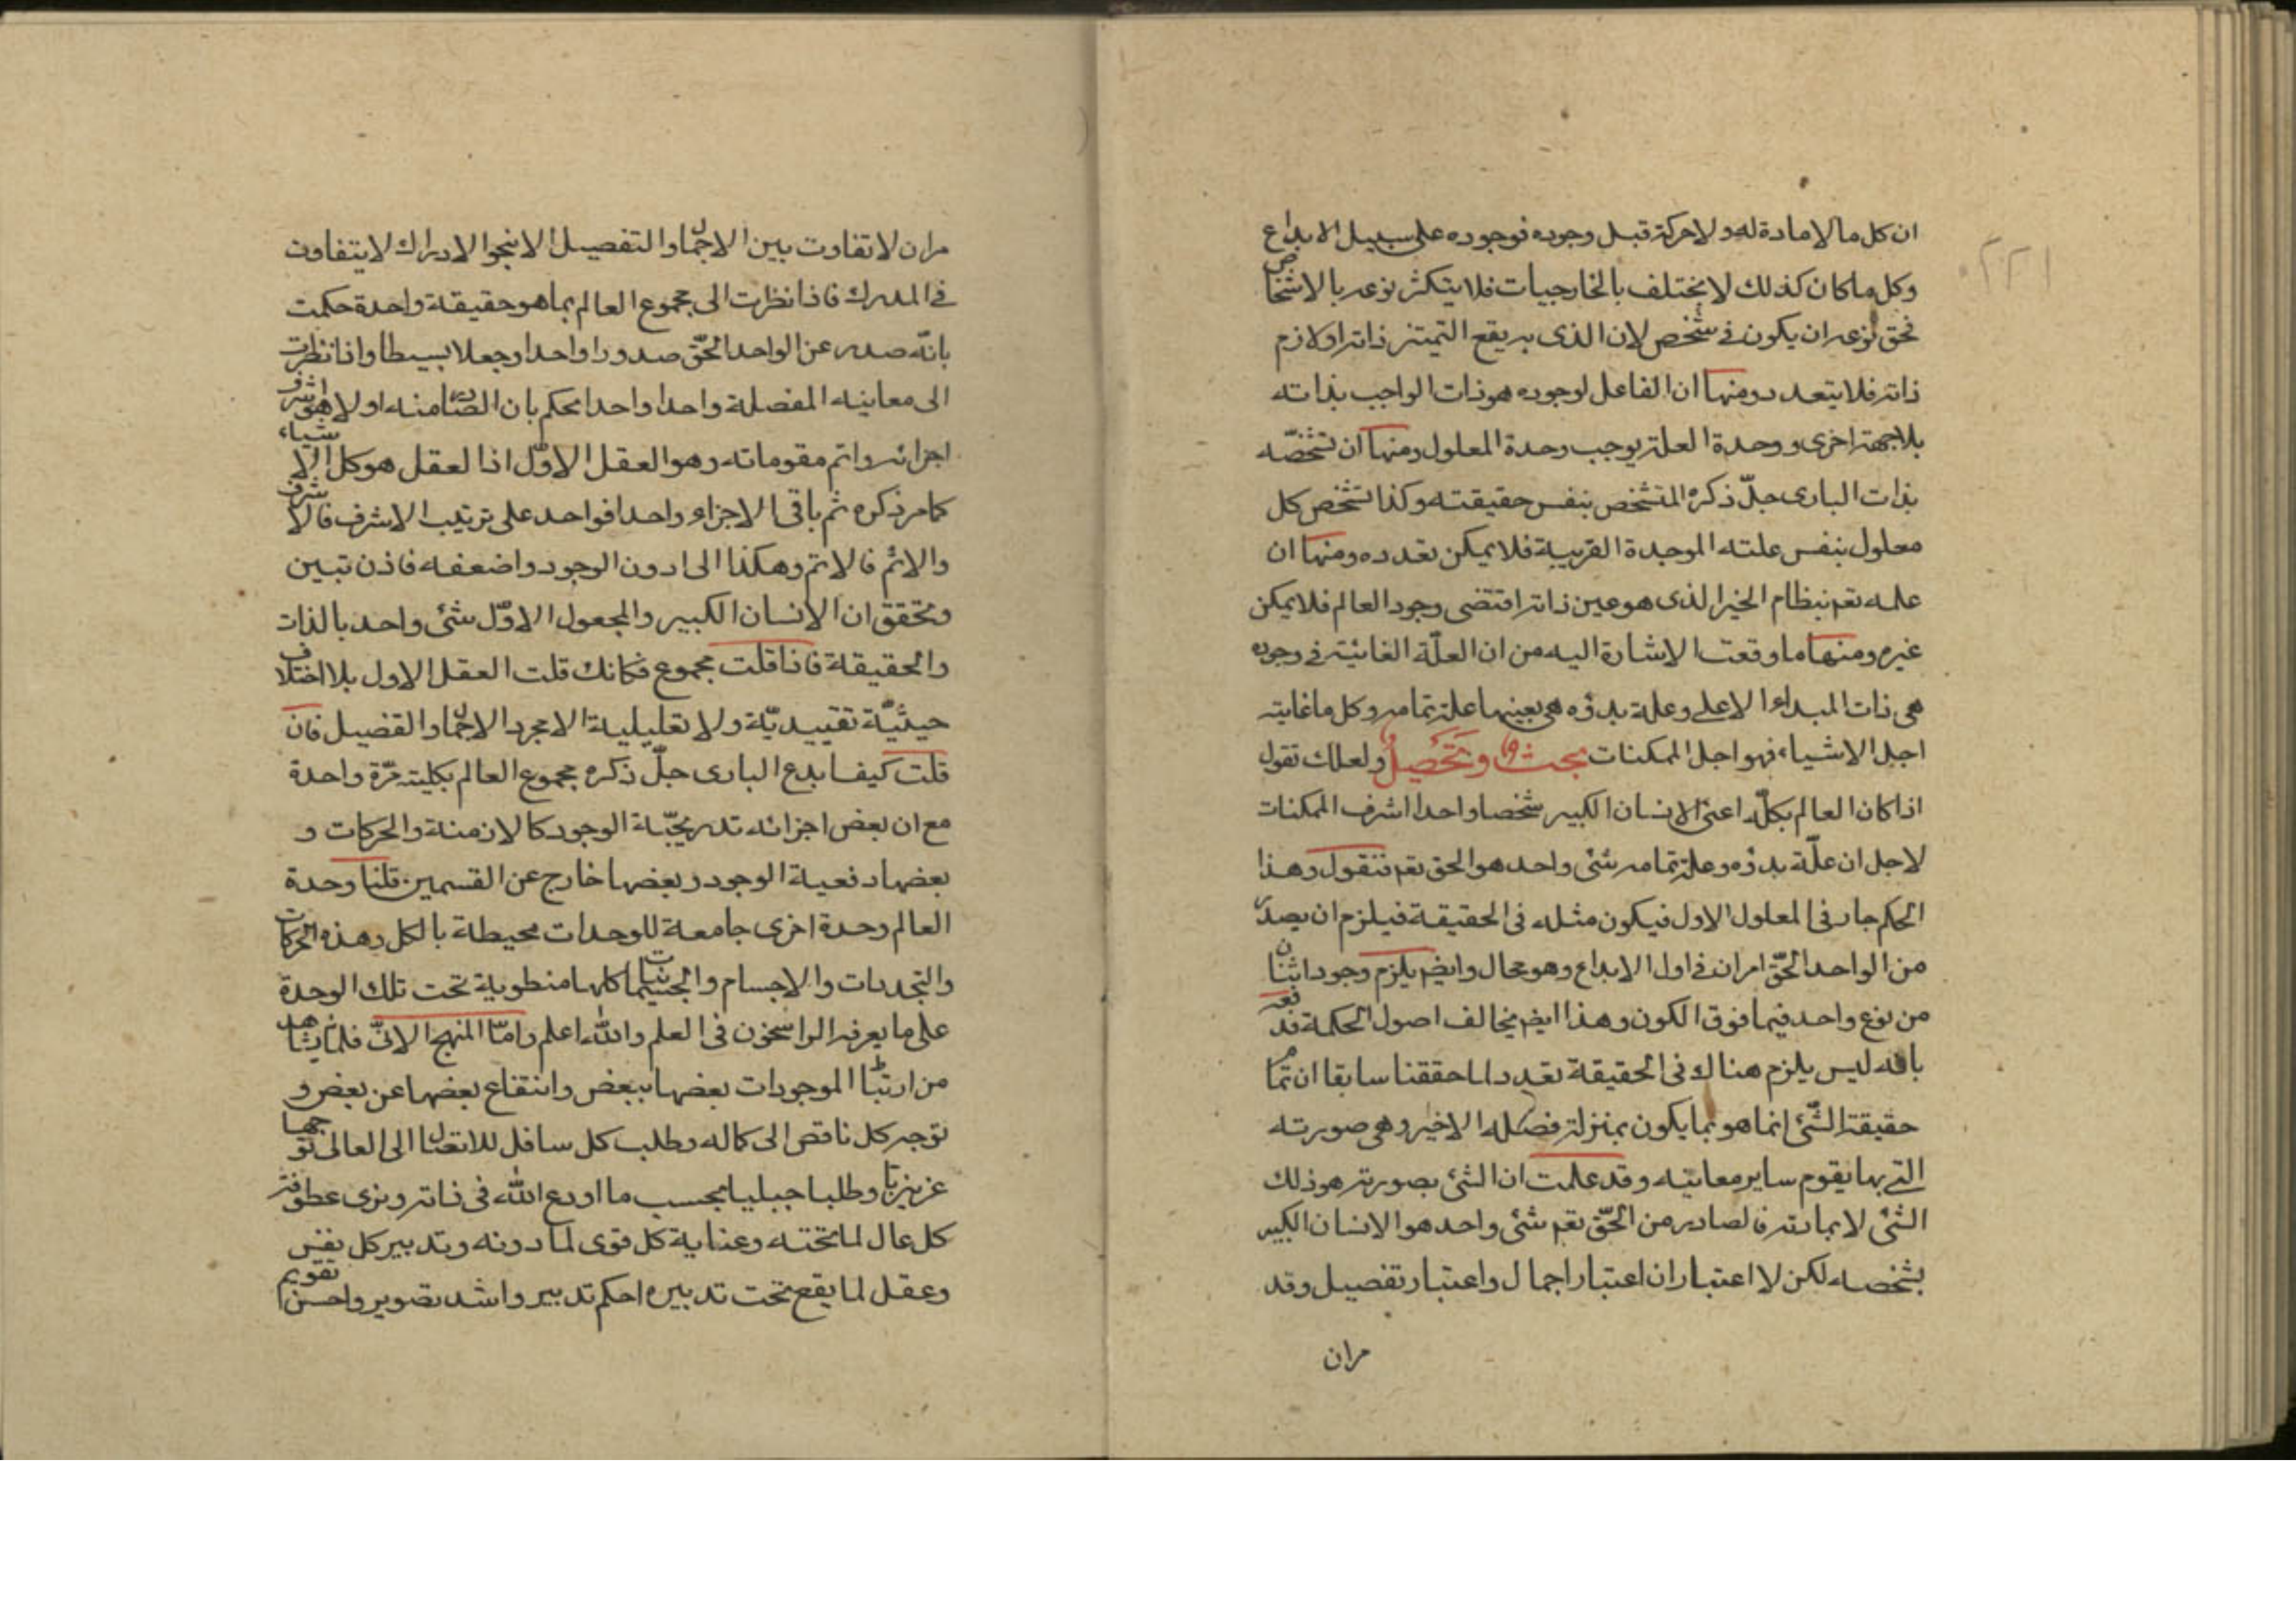 ٢٢١
ان كل ما لا مادة له ولا حركة قبل وجوده فوجوده على سبيل الابداع
وكل ما كان كذلك لا يختلف بالخارجيات فلا يتكثر نوعه بالاشخاص
فحق نوعه ان يكون فى شخص لان الذى به يقع التميّز ذاته او لازم
ذاته فلا يتعدد ومنها ان الفاعل لوجوده هو ذات الواجب بذاته
بلا جهة اخرى ووحدة العلة يوجب وحدة المعلول ومنها ان تشخّصه
بذات البارى جلّ ذكره المتشخص بنفس حقيقته وكذا تشخص كل
معلول بنفس علته الموجدة القريبة فلا يمكن تعدده ومنها ان
علمه تعم بنظام الخير الذى هو عين ذاته اقتضى وجود العالم فلا يمكن
غيره ومنها ما وقعت الاشارة اليه من ان العلّة الغائية فى وجوده
هى ذات المبداء الاعلى وعلة بدؤه هى بعينها علة تمامه وكل ما غايته
اجل الاشياء فهو اجل الممكنات بحث وتحصيل ولعلك تقول
اذا كان العالم بكلّه اعنى الانسان الكبير شخصا واحدا اشرف الممكنات
لاجل ان علّة بدؤه وعلة تمامه شئى واحد هو الحق تعم فنقول وهذا
الحكم جار فى المعلول الاول فيكون مثله فى الحقيقة فيلزم ان يصدر
من الواحد الحقّ امران فى اول الابداع وهو محال وايضم يلزم وجود اثنان
من نوع واحد فيما فوق الكون وهذا ايضم يخالف اصول الحكمة فد نعه
بانه ليس يلزم هناك فى الحقيقة تعدد لما حققنا سابقا ان تمام
حقيقة الشّئى انما هو بما يكون بمنزلة فصله الاخير وهى صورته
التى بها يقوم ساير معانيه وقد علمت ان الشئى بصورته هو ذلك
الشئى لا بمادته فالصادر من الحقّ تعم شئى واحد هو الانسان الكبير
بشخصه لكن لا اعتباران اعتبار اجمال واعتبار تفصيل وقد
مر ان
مر ان لا تفاوت بين الاجمال والتفصيل الا بنحو الادراك لا بتفاوت
فى المدرك فاذا نظرت الى مجموع العالم بما هو حقيقة واحدة حكمت
بانّه صدر عن الواحد الحقّ صدورا واحدا وجعلا بسيطا واذا نظرت
الى معانيه المفصلة واحدا واحدا محكم بان الصّادر منه اولا هو اشرف
اجزائه واتم مقوماته وهو العقل الاوّل اذا لعقل هو كل الاشياء
كما مر ذكره ثم باقى الاجزاء واحدا فواحد على ترتيب الاشرف فالاشرف
والاتم فالاتم وهكذا الى ادون الوجود واضعفه فاذن تبين
وتحقق ان الانسان الكبير والمجعول الاوّل شئى واحد بالذات
والحقيقة فاذا قلت مجموع فكانك قلت العقل الاول بلا اختلاف
حيثيّة تقييديّة ولا تعليلية الا مجرد الاجمال والتفصيل فان
قلت كيف ابدع البارى جلّ ذكره مجموع العالم بكليته مرّة واحدة
مع ان بعض اجزائه تدريجيّة الوجود كالازمنة والحركات و
بعضها دفعية الوجود وبعضها خارج عن القسمين قلنا وحدة
العالم وحدة اخرى جامعة للوحدات محيطة بالكل وهذه الحركات
والتجددات والاجسام والجسمانيات كلها منطوية تحت تلك الوحدة
على ما يعرفه الراسخون فى العلم والله اعلم وامّا المنهج الانّى فلما يشاهد
من ارتباط الموجودات بعضها ببعض وانتفاع بعضها عن بعض و
توجه كل ناقص الى كماله وطلب كل سافل للاتصال الى العالى توجها
غريزيا وطلبا جبليا بحسب ما اودع الله فى ذاته ونرى عطوفة
كل عال لما تحته وعناية كل قوى لما دونه وتدبير كل نفس
وعقل لما يقع تحت تدبيره احكم تدبير واشد تصوير واحسن تقويم